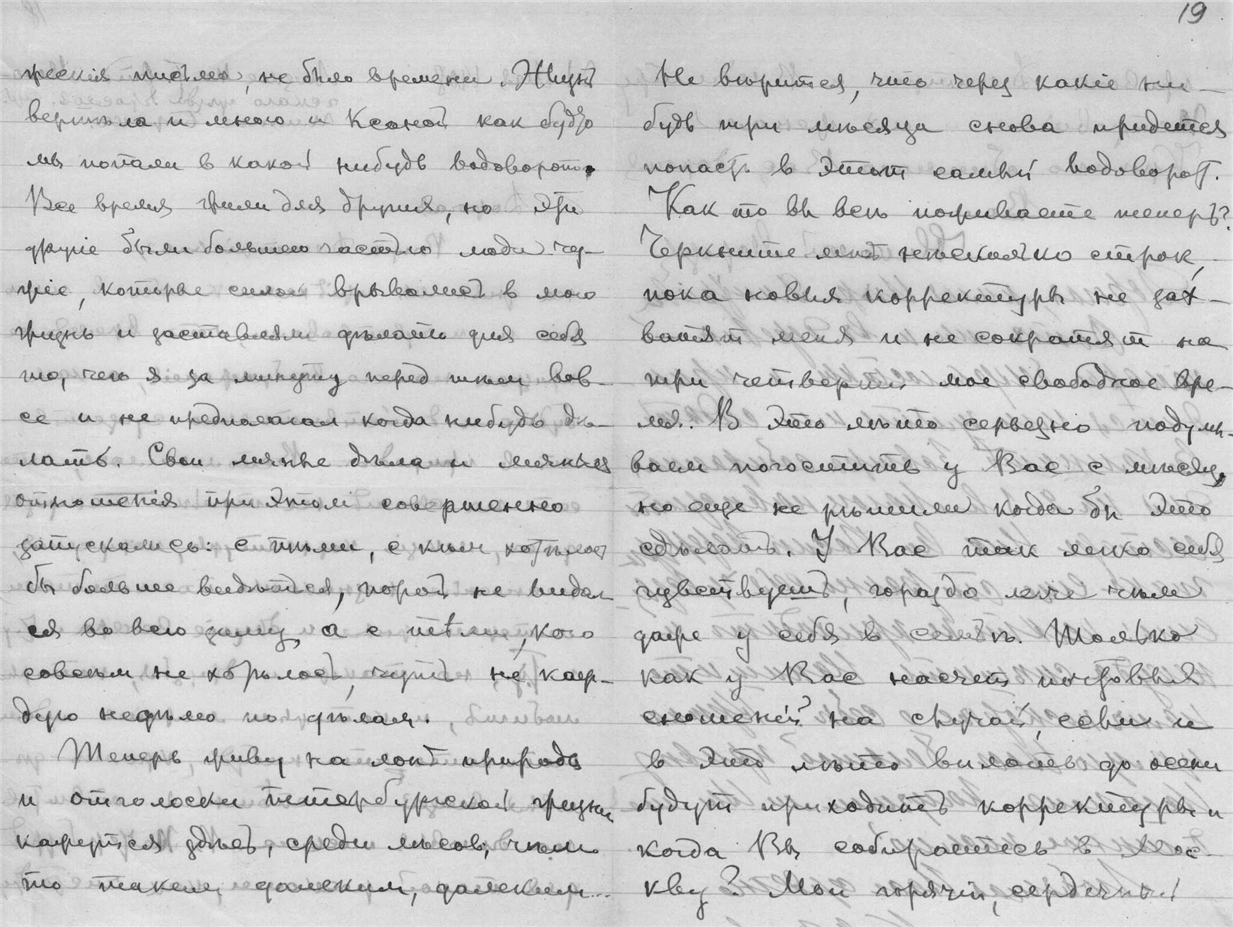 ческия письма, не было времени. Жизнь
вертѣла и мною и Ксаной как будто
мы попали в какой нибудь водоворот.
Все время жили для других, но эти
другіе были большею частью люди чу-
жіе, которые силой врывались в мою
жизнь и заставляли дѣлать для себя
то, чего я за минуту перед тѣм вов-
се и не предполагал когда нибудь дѣ-
лать. Свои личные дѣла и личныя
отношенія при этом совершенно
запускались: с тѣми, с кѣм хотѣлось
бы больше видѣться, порой не видал-
ся во всю зиму, а с тѣми, кого
совсѣм не хотѣлось, чуть не каж-
дую недѣлю по дѣлам.
Теперь живу на лонѣ природы
и отголоски петербургской жизни
кажутся здѣсь, среди лѣсов, чѣм
то таким далеким, далеким...
19
Не вѣрится, что через какіе ни-
будь три мѣсяца снова придется
попасть в этот самый водоворот.
Как то вы всѣ поживаете теперь?
Черкните мнѣ нѣсколько строк,
пока новыя корректуры не зах-
ватят меня и не сократят на
три четверти мое свободное вре-
мя. В это лѣто серьезно подумы-
ваем погостить у Вас с мѣсяц,
но еще не рѣшили когда бы это
сдѣлать. У Вас так легко себя
чувствуешь, гораздо легче чѣм
даже у себя в семьѣ. Только
как у Вас насчет почтовых
сношеній? на случай, если и
в это лѣто вплоть до осени
будут приходить корректуры и
когда Вы собираетесь в Мос-
кву? Мой горячій, сердечный